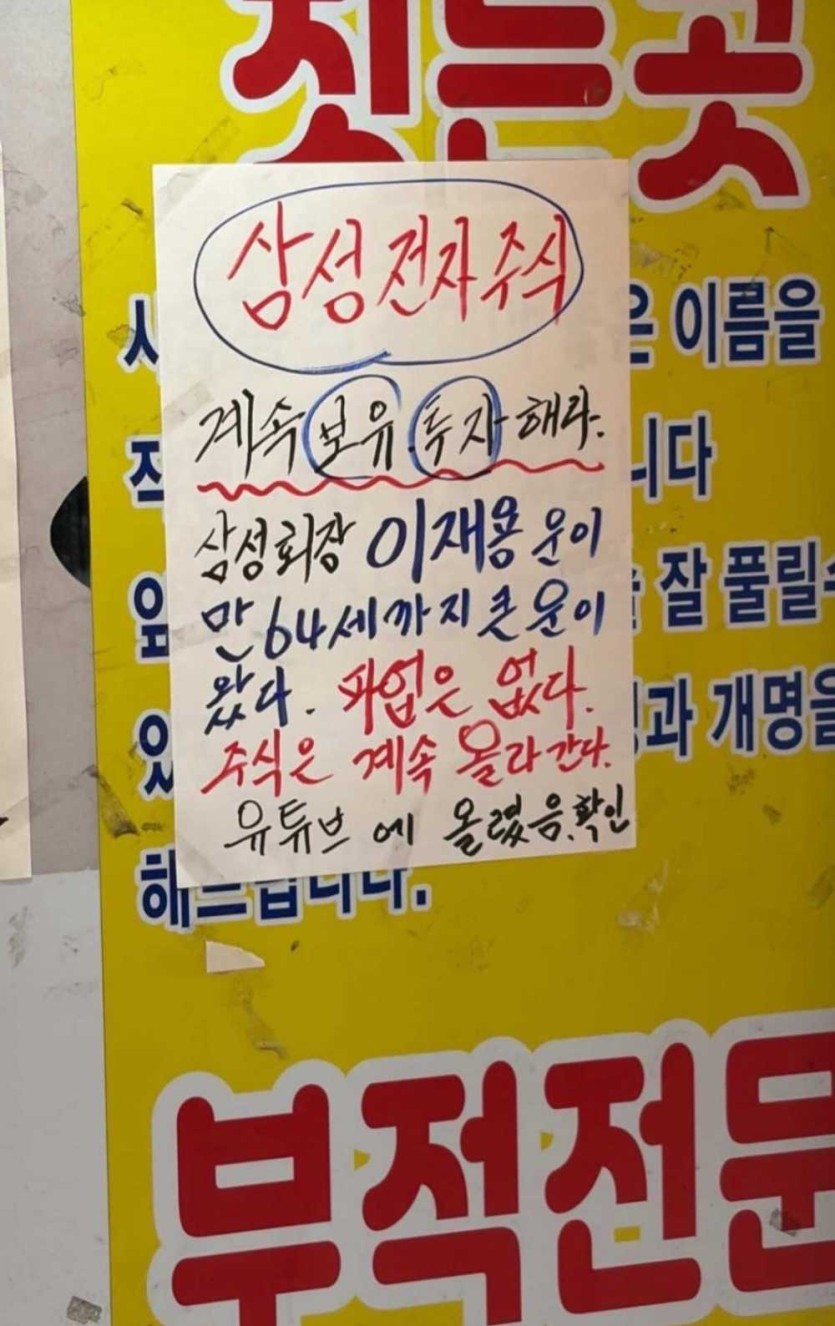 짓는곳
삼성전자주식
은 이름을
계속 보유.투자해라.
니다
삼성회장 이재용 운이
만 64세까지 큰 운이
잘 풀릴
왔다. 파업은 없다.
과 개명을
주식은 계속 올라간다.
유튜브에 올렸음.확인
해드립니다.
부적전문